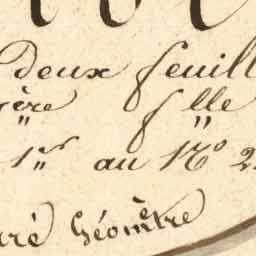 deux feuill
ère f lle
1er au No 2
rré Géomètre